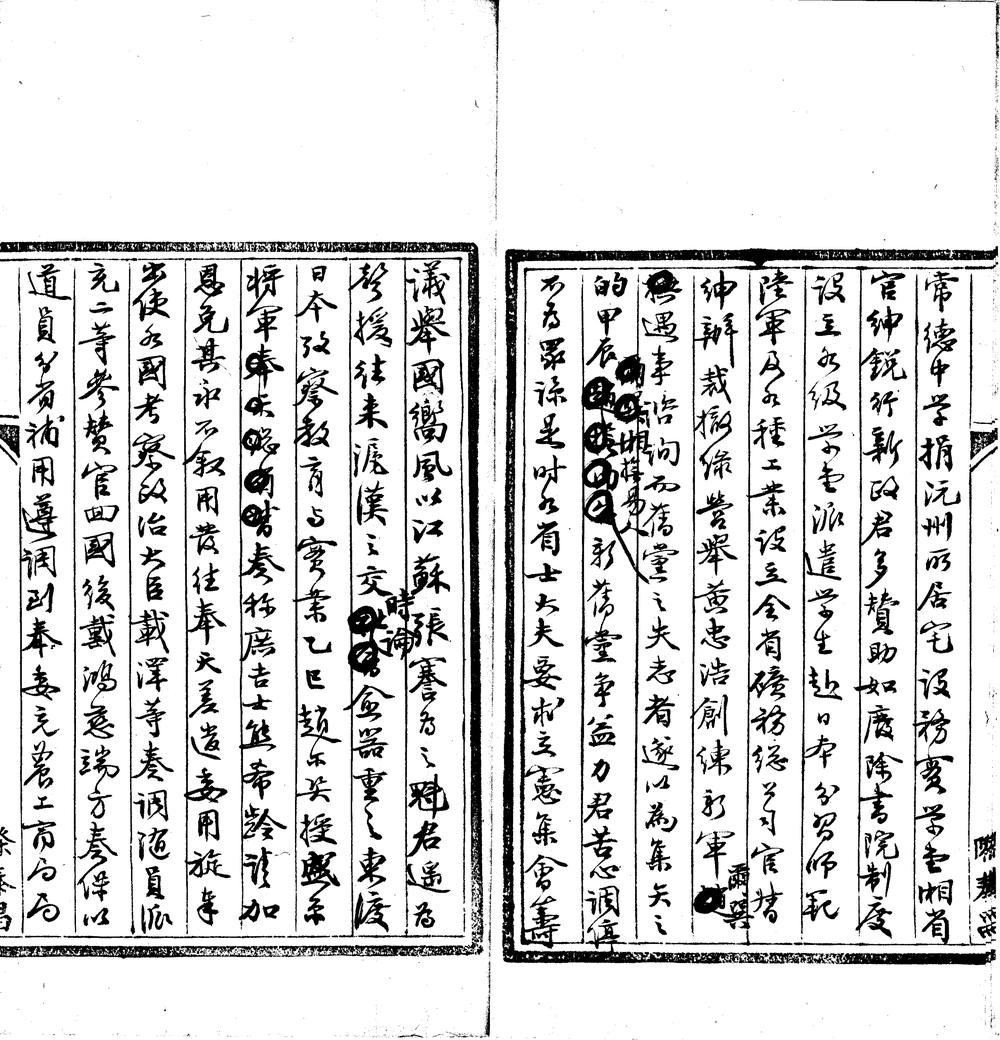 常德中学捐沅州所居宅設務實学堂湘省
官紳銳行新政君多贊助如廢除書院制度
設立各級学堂派遣学生赴日本分習師範
陸軍及各種工業設立全省礦務總公司官督
紳辦裁撤綠營舉黃忠浩創練新軍爾巽
撫湘遇事諮詢而舊黨之失志者遂以為集矢之
的甲辰新舊黨爭益力君苦心調停
不為眾諒是時各省士大夫要求立憲集會籌
議舉國嚮風以江蘇張謇為之魁君遥為
聲援往来滬漢之交時論僉器重之東渡
日本攷察教育与實業乙巳趙尔巽授盛京
将軍奏称庶吉士熊希齡請加
恩免其永不叙用發往奉天差遣委用旋奉
出使各國考察政治大臣載澤等奏調随員派
充二等參贊官回國後戴鴻慈端方奏保以
道員分省補用遵調到奉委充農工商局局